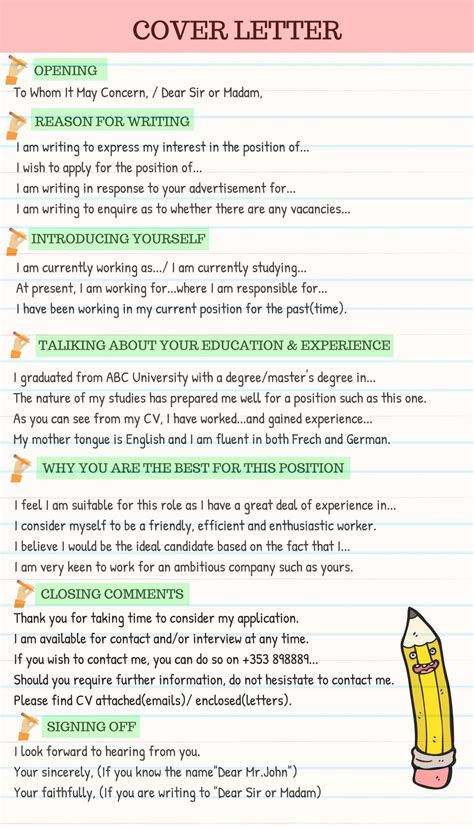 COVER LETTER
OPENING
To Whom It May Concern, / Dear Sir or Madam,
REASON FOR WRITING
I am writing to express my interest in the position of...
I wish to apply for the position of...
I am writing in response to your advertisement for...
I am writing to enquire as to whether there are any vacancies...
INTRODUCING YOURSELF
I am currently working as.../ I am currently studying...
At present, I am working for...where I am responsible for...
I have been working in my current position for the past(time).
TALIKING ABOUT YOUR EDUCATION & EXPERIENCE
I graduated from ABC University with a degree/master's degree in...
The nature of my studies has prepared me well for a position such as this one.
As you can see from my CV, I have worked...and gained experience...
My mother tongue is English and I am fluent in both Frech and German.
WHY YOU ARE THE BEST FOR THIS POSITION
I feel I am suitable for this role as I have a great deal of experience in...
I consider myself to be a friendly, efficient and enthusiastic worker.
I believe I would be the ideal candidate based on the fact that I...
I am very keen to work for an ambitious company such as yours.
CLOSING COMMENTS
Thank you for taking time to consider my application.
I am available for contact and/or interview at any time.
If you wish to contact me, you can do so on +353 898889...
Should you require further information, do not hesistate to contact me.
Please find CV attached(emails)/ enclosed(letters).
SIGNING OFF
I look forward to hearing from you.
Your sincerely, (If you know the name"Dear Mr.John")
Your faithfully, (If you are writing to "Dear Sir or Madam)